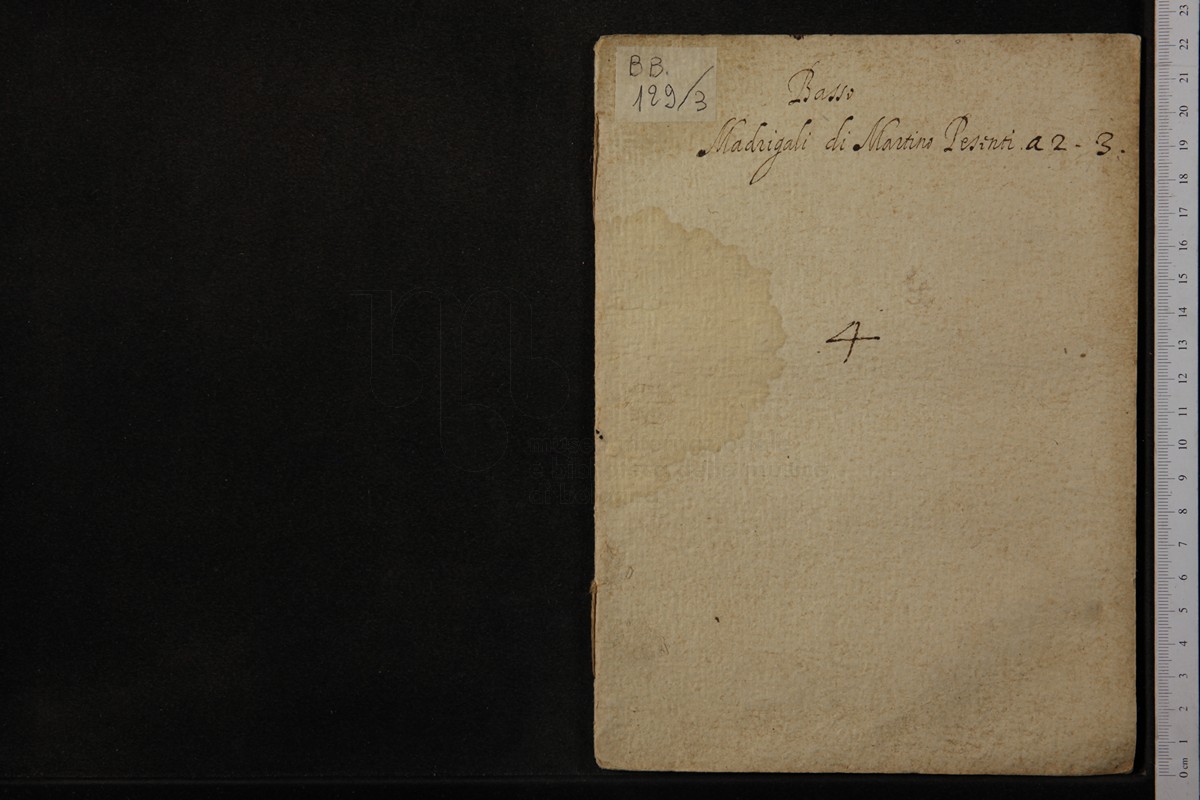 BB.
129/3
Basso
Madrigali di Martino Pesenti a 2 - 3.
4
23
22
21
20
19
18
17
16
15
14
13
12
11
10
9
8
7
6
5
4
3
2
1
0 cm